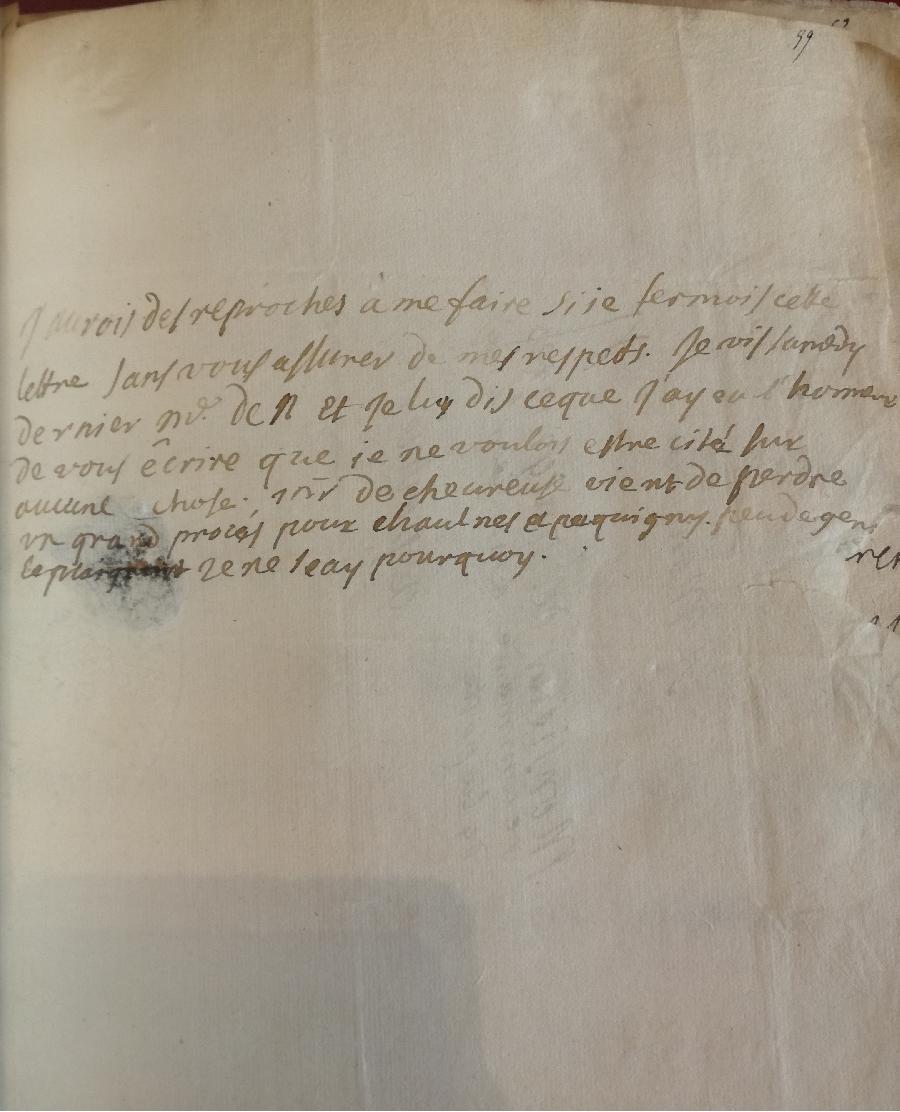 59
J'aurois des reproches à me faire si ie fermois cette
lettre sans vous assurer de mes respets. Je vis lundy
dernier Md. de N et Je luy dis ceque J'ay eu l'honneur
de vous êcrire que ie ne voulois estre cité sur
aucune chose. mr de cheureuse vient de perdre
un grand proces pour chaulnes et pequigny. peu de gens
le plaignent Jene scay pourquoy.